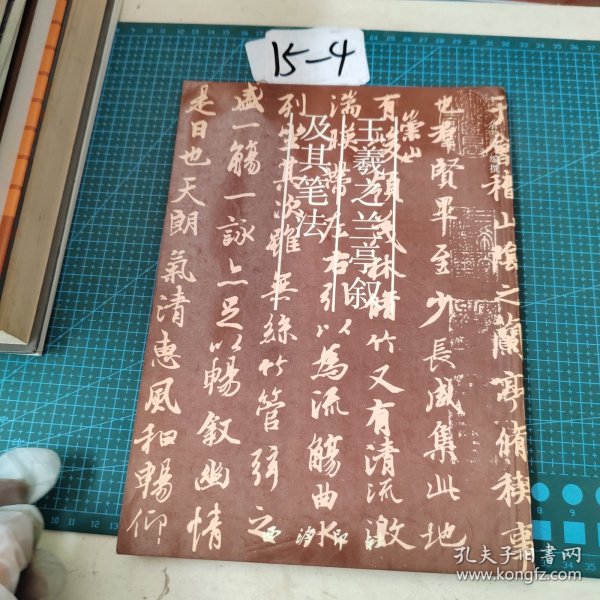 15-4
编撰
王羲之兰亭叙
及其笔法
于會稽山陰之蘭亭脩禊事
也羣賢畢至少長咸集此地
有崇山峻領茂林脩竹又有清流激
湍暎帶左右引以為流觴曲水
列坐其次雖無絲竹管弦之
盛一觴一詠亦足以暢敘幽情
是日也天朗氣清惠風和暢仰
西泠印社
孔夫子旧书网
www.kongfz.com